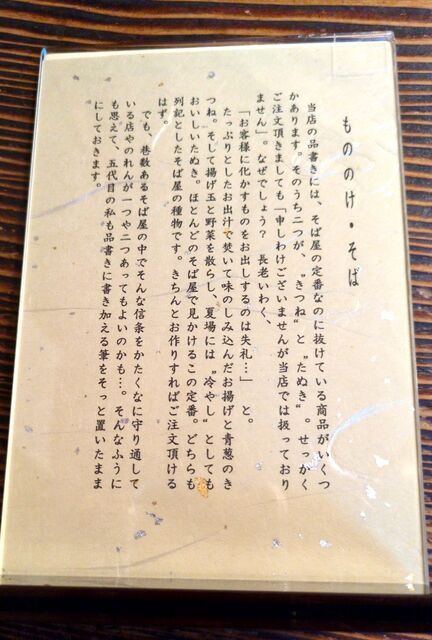 もののけ・そば
当店の品書きには、そば屋の定番なのに抜けている商品がいくつ
かあります。そのうち二つが、〝きつね〟と〝たぬき〟。せっかく
ご注文頂きましても「申しわけございませんが当店では扱っており
ません」。なぜでしょう？　長老いわく、
「お客様に化かすものをお出しするのは失礼…」　と。
たっぷりとしたお出汁で焚いて味のしみ込んだお揚げと青葱のき
つね。そして揚げ玉と野菜を散らし、夏場には〝冷やし〟としても
おいしいたぬき。ほとんどのそば屋で見かけるこの定番。どちらも
列記としたそば屋の種物です。きちんとお作りすればご注文頂ける
はず。
でも、巷数あるそば屋の中でそんな信条をかたくなに守り通して
いる店やのれんが一つや二つあってもよいのかも…。そんなふうに
も思えて、五代目の私も品書きに書き加える筆をそっと置いたまま
にしておきます。